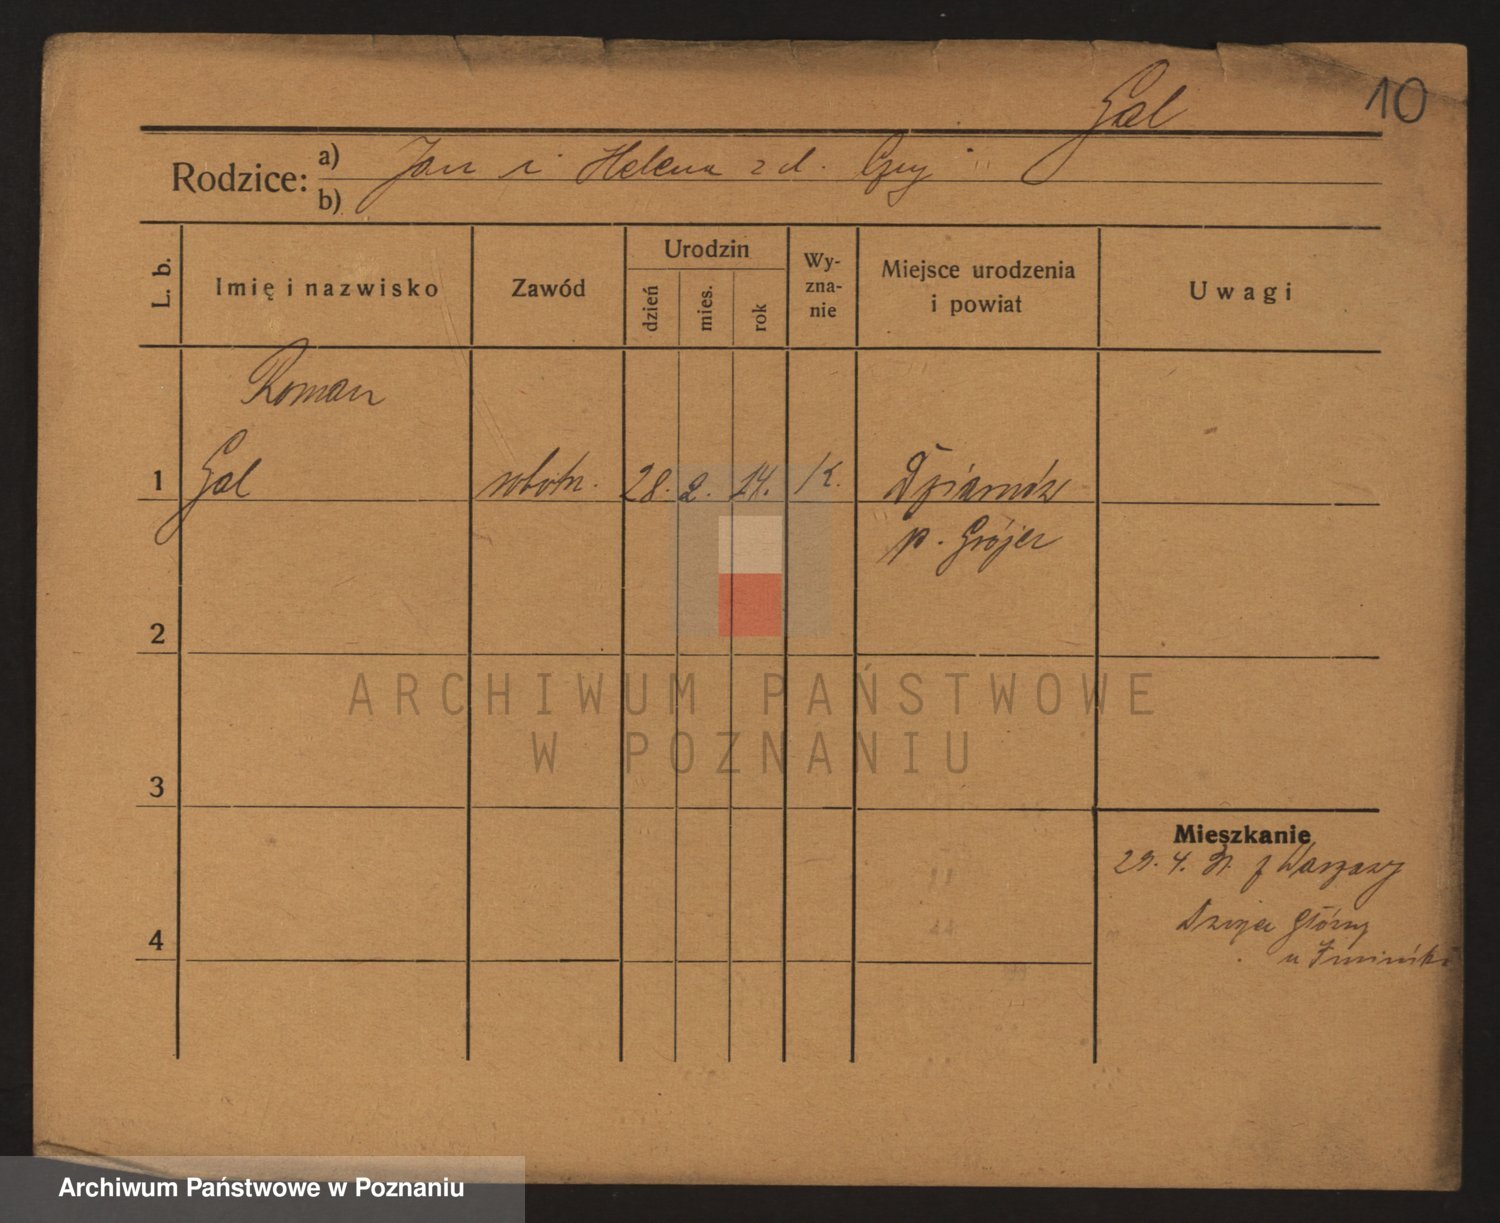 Gal
10
Rodzice: a) Jan i Helena z d.
b)
L. b.
Imię i nazwisko
Zawód
Urodzin
dzień
mies.
rok
Wy-
zna-
nie
Miejsce urodzenia
i powiat
Uwagi
Roman
1 Gal robotn. 28. 2. 14. K.
p. Grójec
2
ARCHIWUM PAŃSTWOWE
W POZNANIU
3
Mieszkanie
29. 4. z Warszawy
4
u
Archiwum Państwowe w Poznaniu